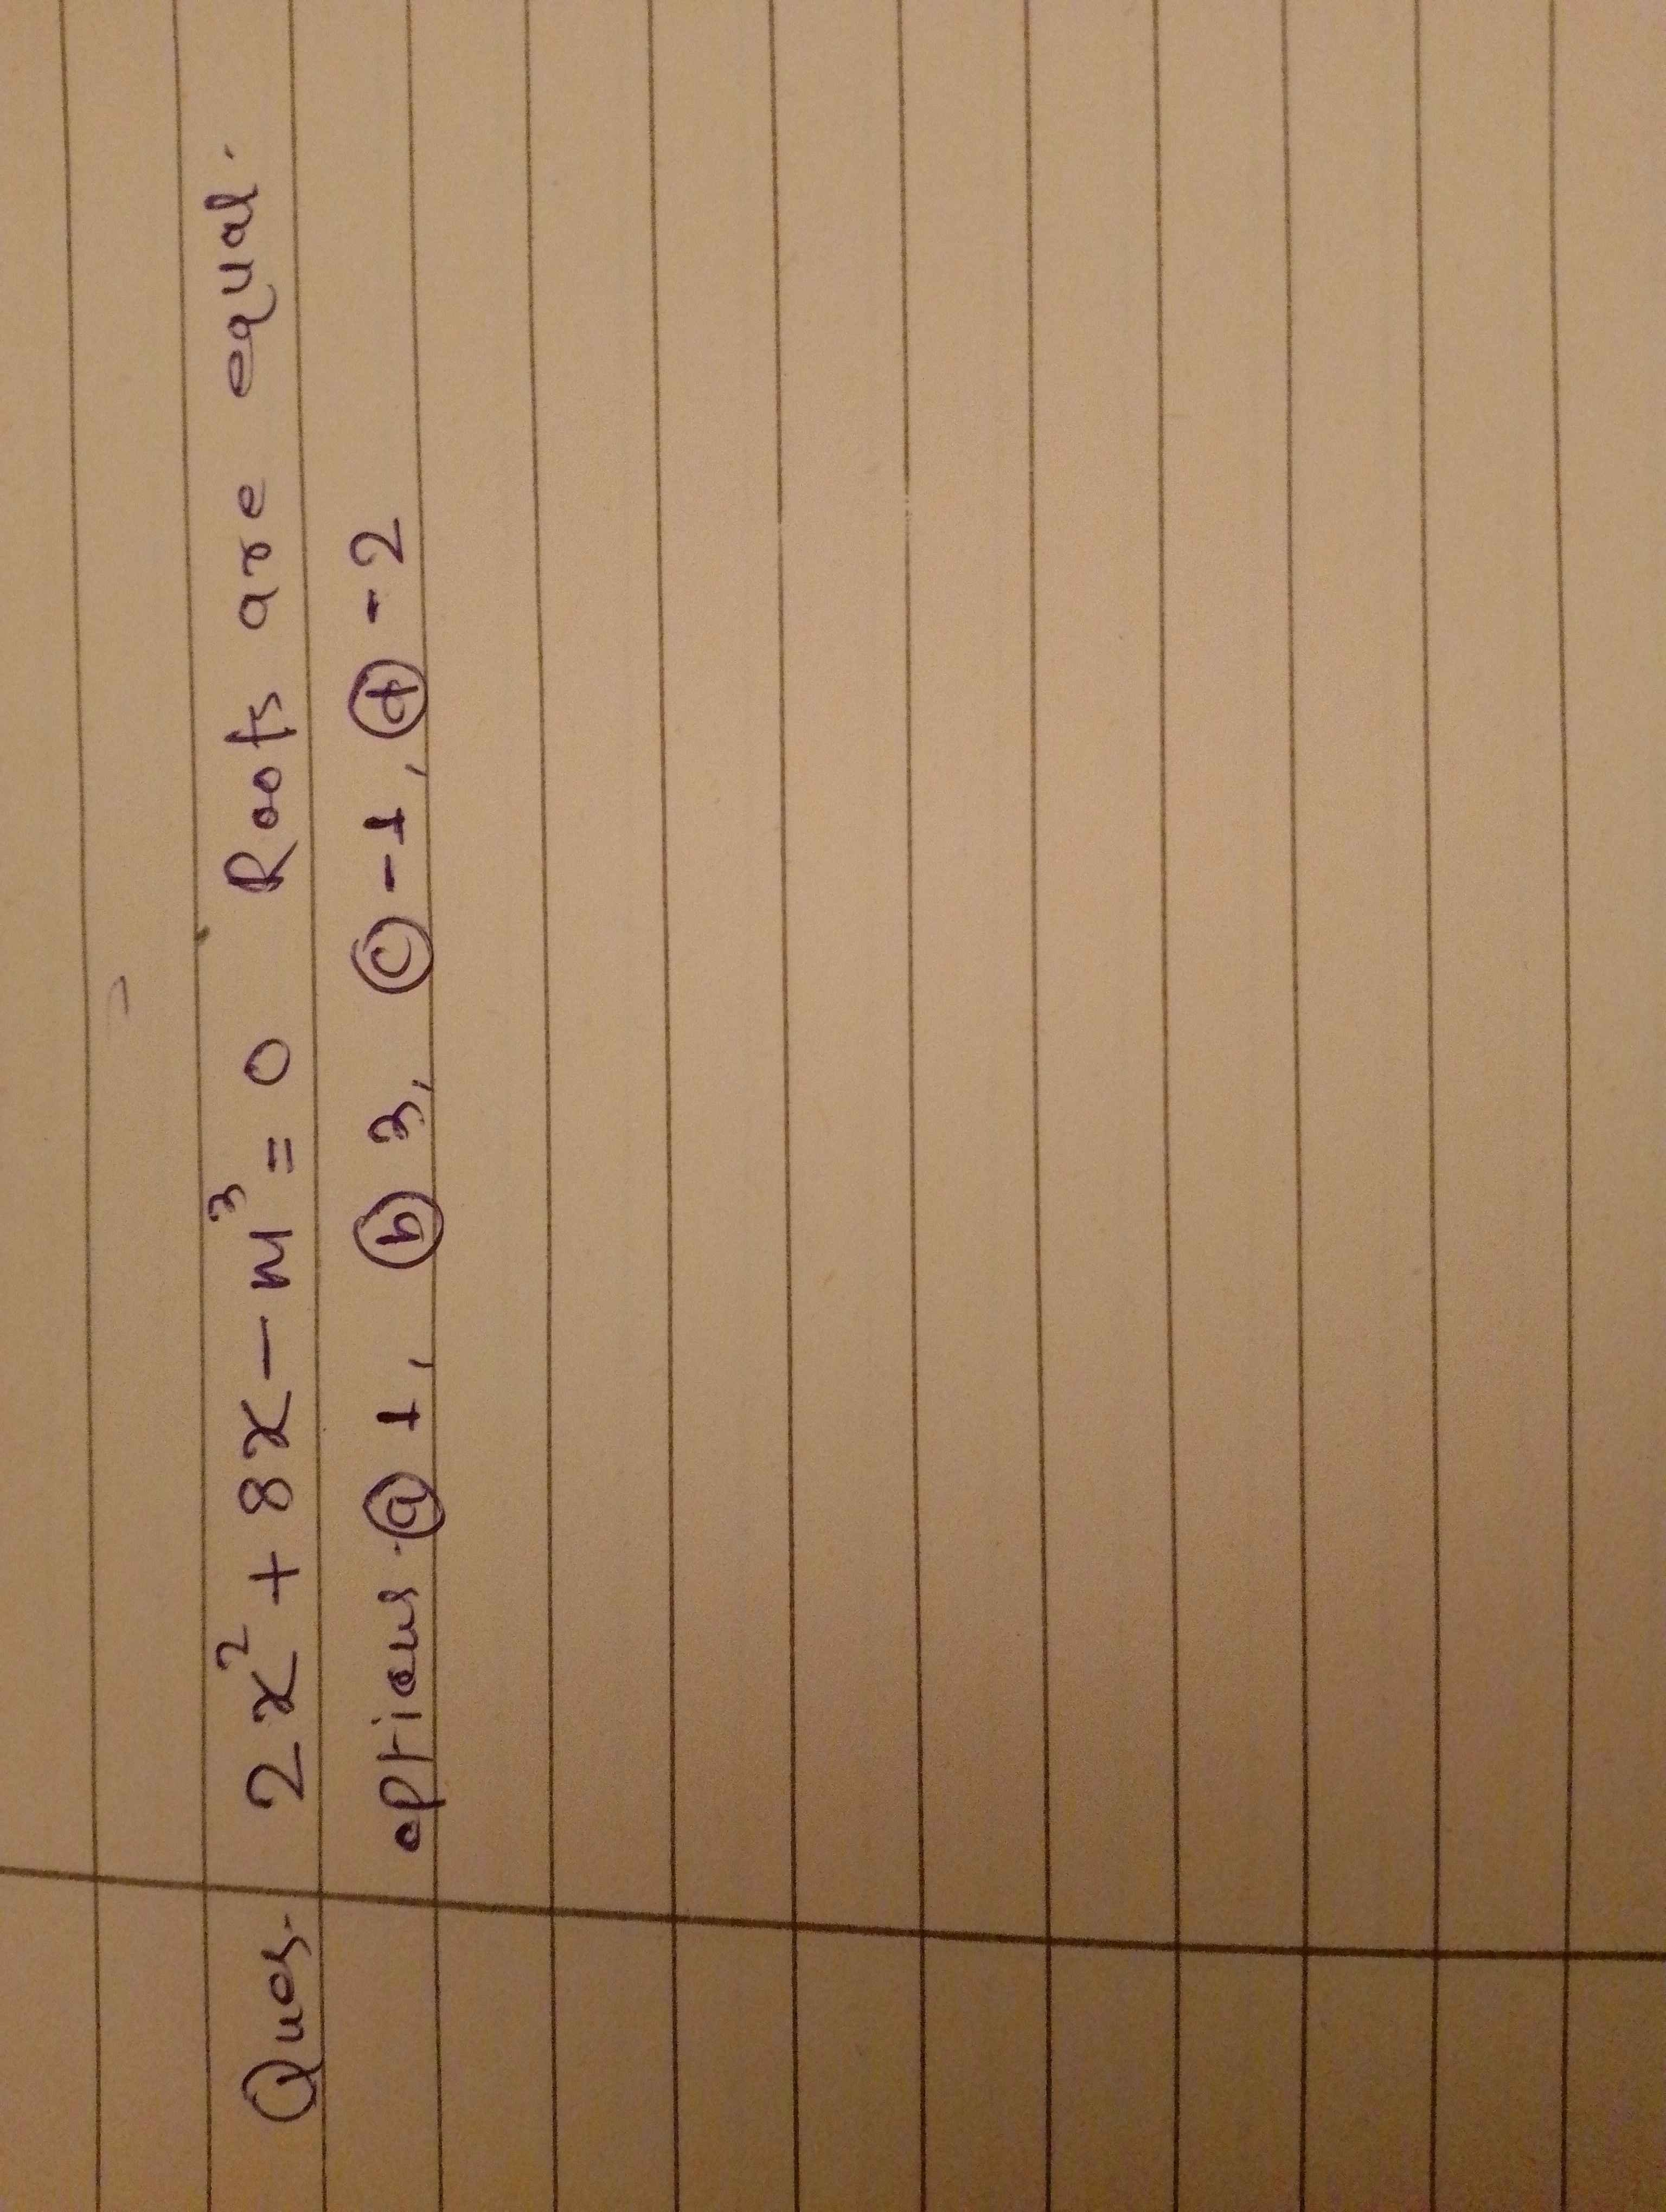 Ques. 2x² + 8x - m³ = 0 Roots are equal.
options. ⓐ 1, ⓑ 3, ⓒ -1, ⓓ -2